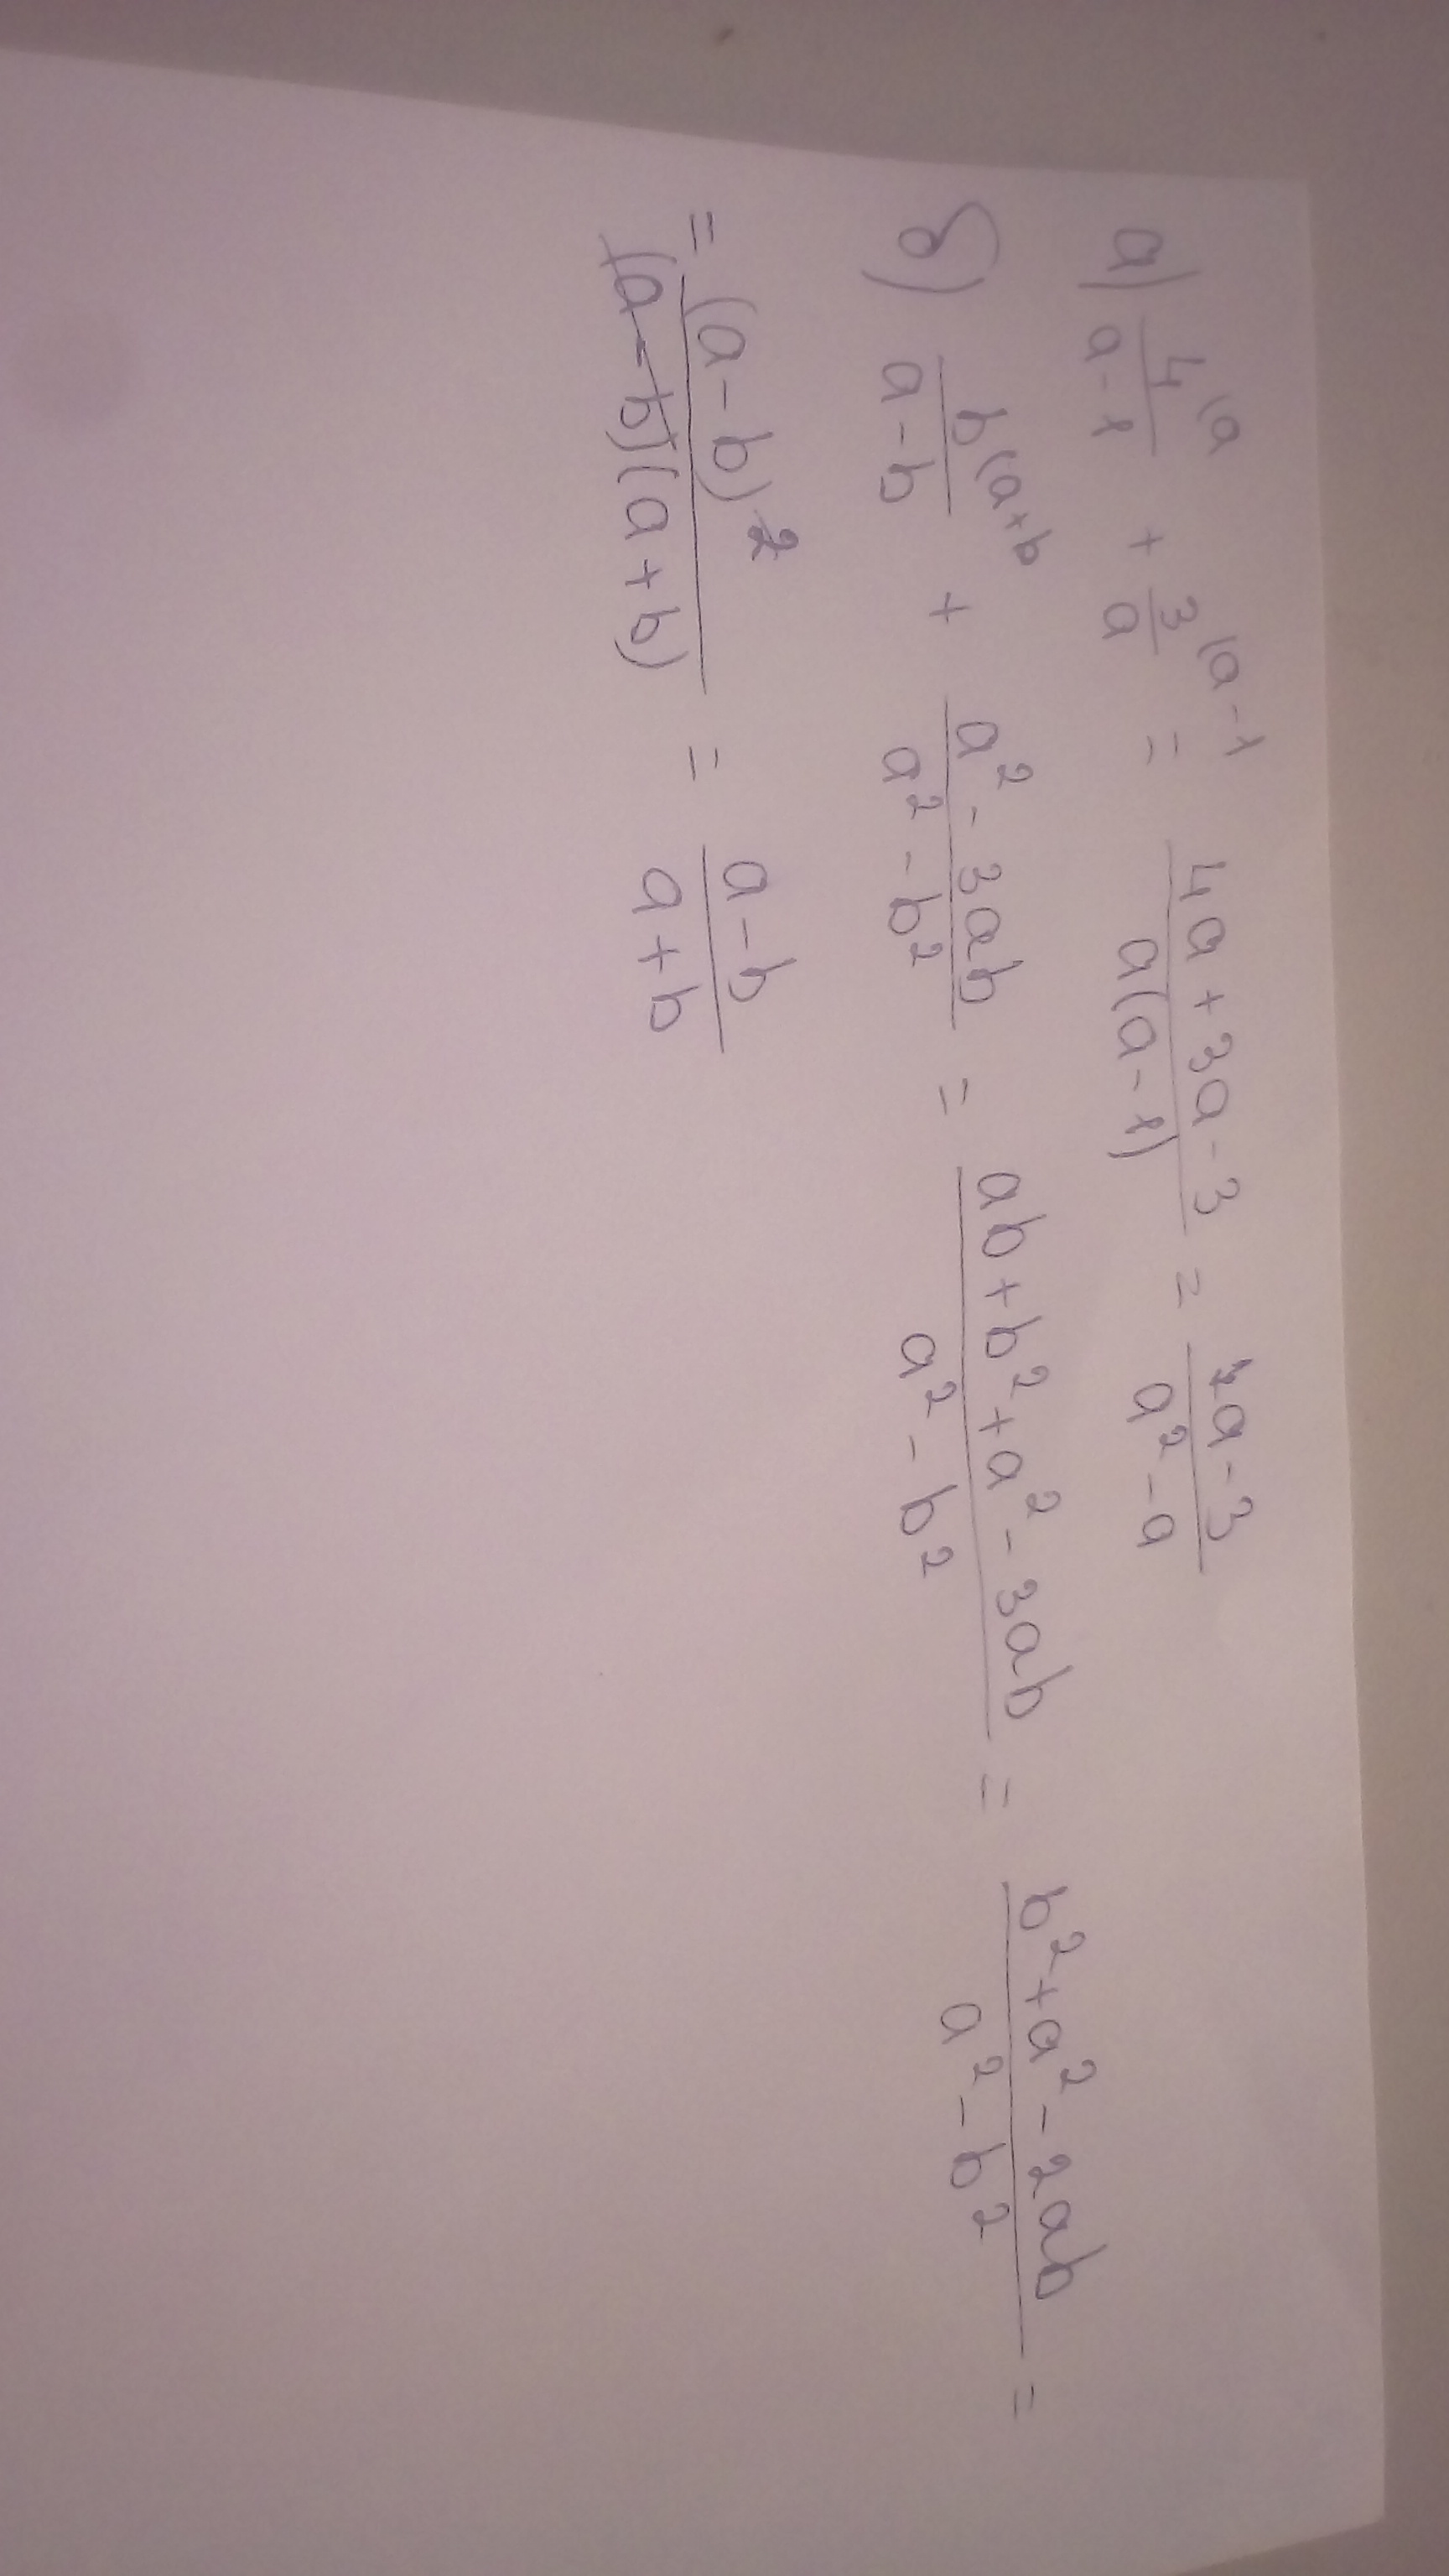 а) 4(a / a-1 + 3(a-1 / a = 4a+3a-3 / a(a-1) = 7a-3 / a²-a
б) b(a+b / a-b + a²-3ab / a²-b² = ab+b²+a²-3ab / a²-b² = b²+a²-2ab / a²-b² =
= (a-b)² / (a-b)(a+b) = a-b / a+b